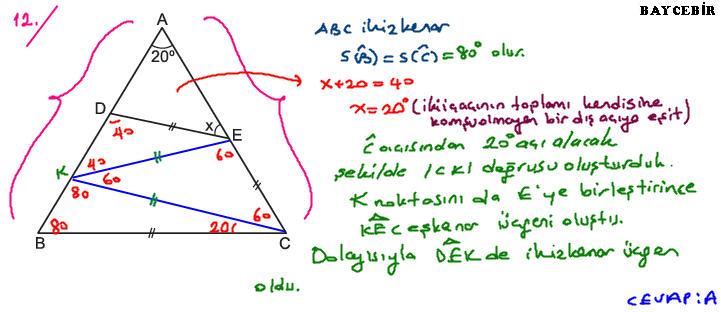 BAYCEBİR
12./
A
20°
D
40
x
E
K
40
60
60
80
80
20
60
B
C
ABC ikizkenar
S(B̂) = S(Ĉ) = 80° olur.
x+20 = 40
x = 20° (iki iç açının toplamı kendisine
komşu olmayan bir dış açıya eşit)
Ĉ açısından 20° açı alacak
şekilde |CK| doğrusu oluşturduk.
K noktasını da E'ye birleştirince
KEC eşkenar üçgeni oluştu.
Dolayısıyla DEK de ikizkenar üçgen
oldu.
CEVAP: A